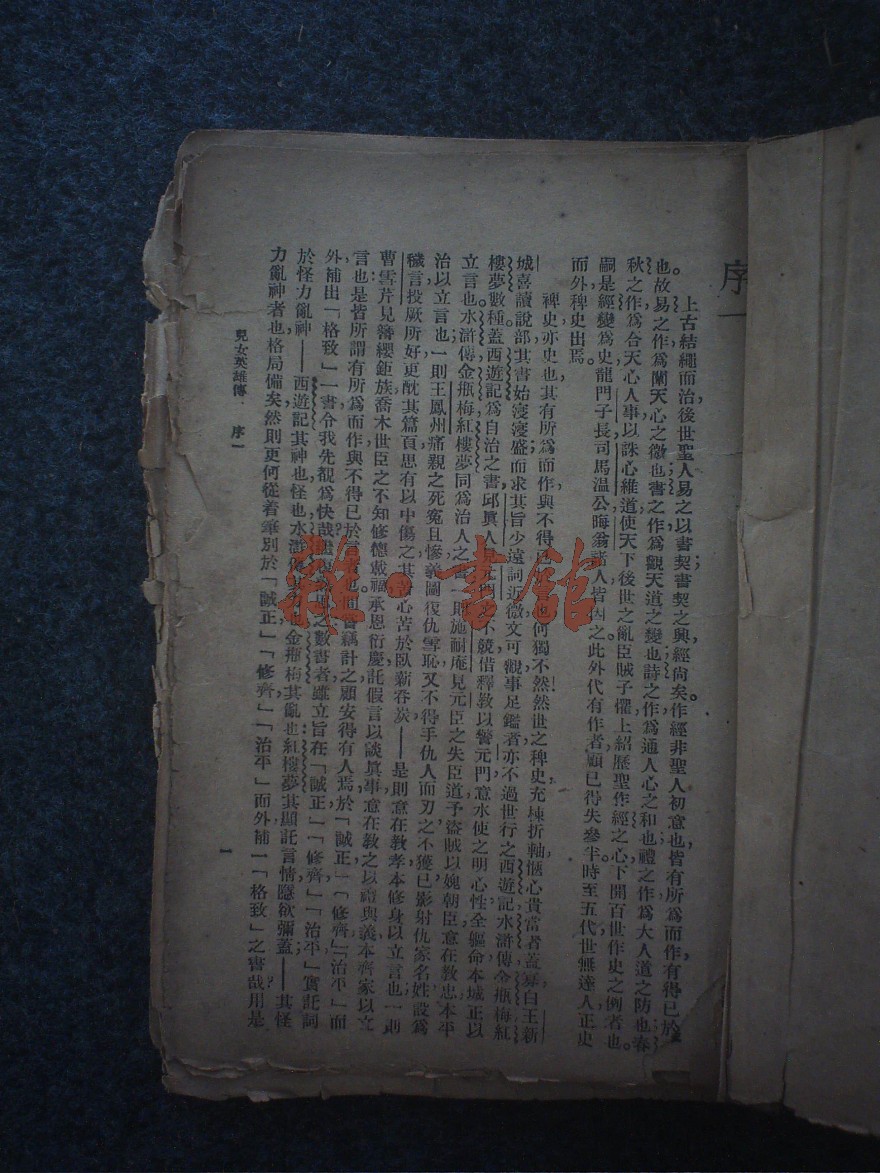 序一
上古結繩而治後世聖人易之以書契書契之興經尚矣作經非聖人初意也皆有所爲而作有得已於
也。故易之作爲闡天心之微也書之作爲觀天道之變也詩之作爲通人心之和也禮之作爲大人道之防也春
秋之作爲合天心人事以誅心維道使天下後世之亂臣賊子懼上紹歷聖作經之心下開百世作史之例者也。
嗣是經變爲史龍門子長司馬温公晦翁諸人皆因之此外代有作者顧已得失參半時至五代世無達人正史
而外稗史出焉。
稗史亦史也其有所爲而作與不得已也何獨不然然世之稗史充棟折軸愜心貴當者蓋寡自王新
城喜讀說部其書始寖寖盛而求其旨少遠詞近微文可觀事足鑑者亦不過世行之西遊記水滸傳金瓶梅紅
樓夢數種蓋西遊記爲自治之書邱眞人元門之不競借釋敎以警元門意水使之明心性全軀命本城正以
立言也水滸傳金瓶梅紅樓夢同爲治人之書一則施耐庵見元臣之失臣道予盜賊以媿朝臣意在敎忠本平
治以立言也一則王鳳州痛親之死寃且慘義圖復仇雪恥又不得手仇人而刃之不獲已影射仇家名姓設爲
穢言投厥所好更酖其篇頁思有以中傷之其苦心苦於臥薪吞炭——是則意在敎孝本修身以立言也一則
曹雪芹見簪纓鉅族喬木世臣之不知修德載福承恩衍慶託假言以談眞事意在敎之以禮與義本齊家以立
言也是皆所謂有所爲而作與不得已於言者也間嘗竊計之顧安得有人焉於「誠正」「修齊」「治平」而
外補出「格致」一書令我先覩爲快哉之數書者雖立旨在「誠正」「修齊」「治平」實託詞
於怪力亂神——西遊記其神也怪也水滸傳其力也金瓶梅其亂也紅樓夢其顯託言情隱欲彌蓋——其怪
力亂神者也格局備矣然則更何從着筆別於「誠正」「修齊」「治平」而外補一「格致」之書哉用是
兒女英雄傳 序一
一
雜·書館